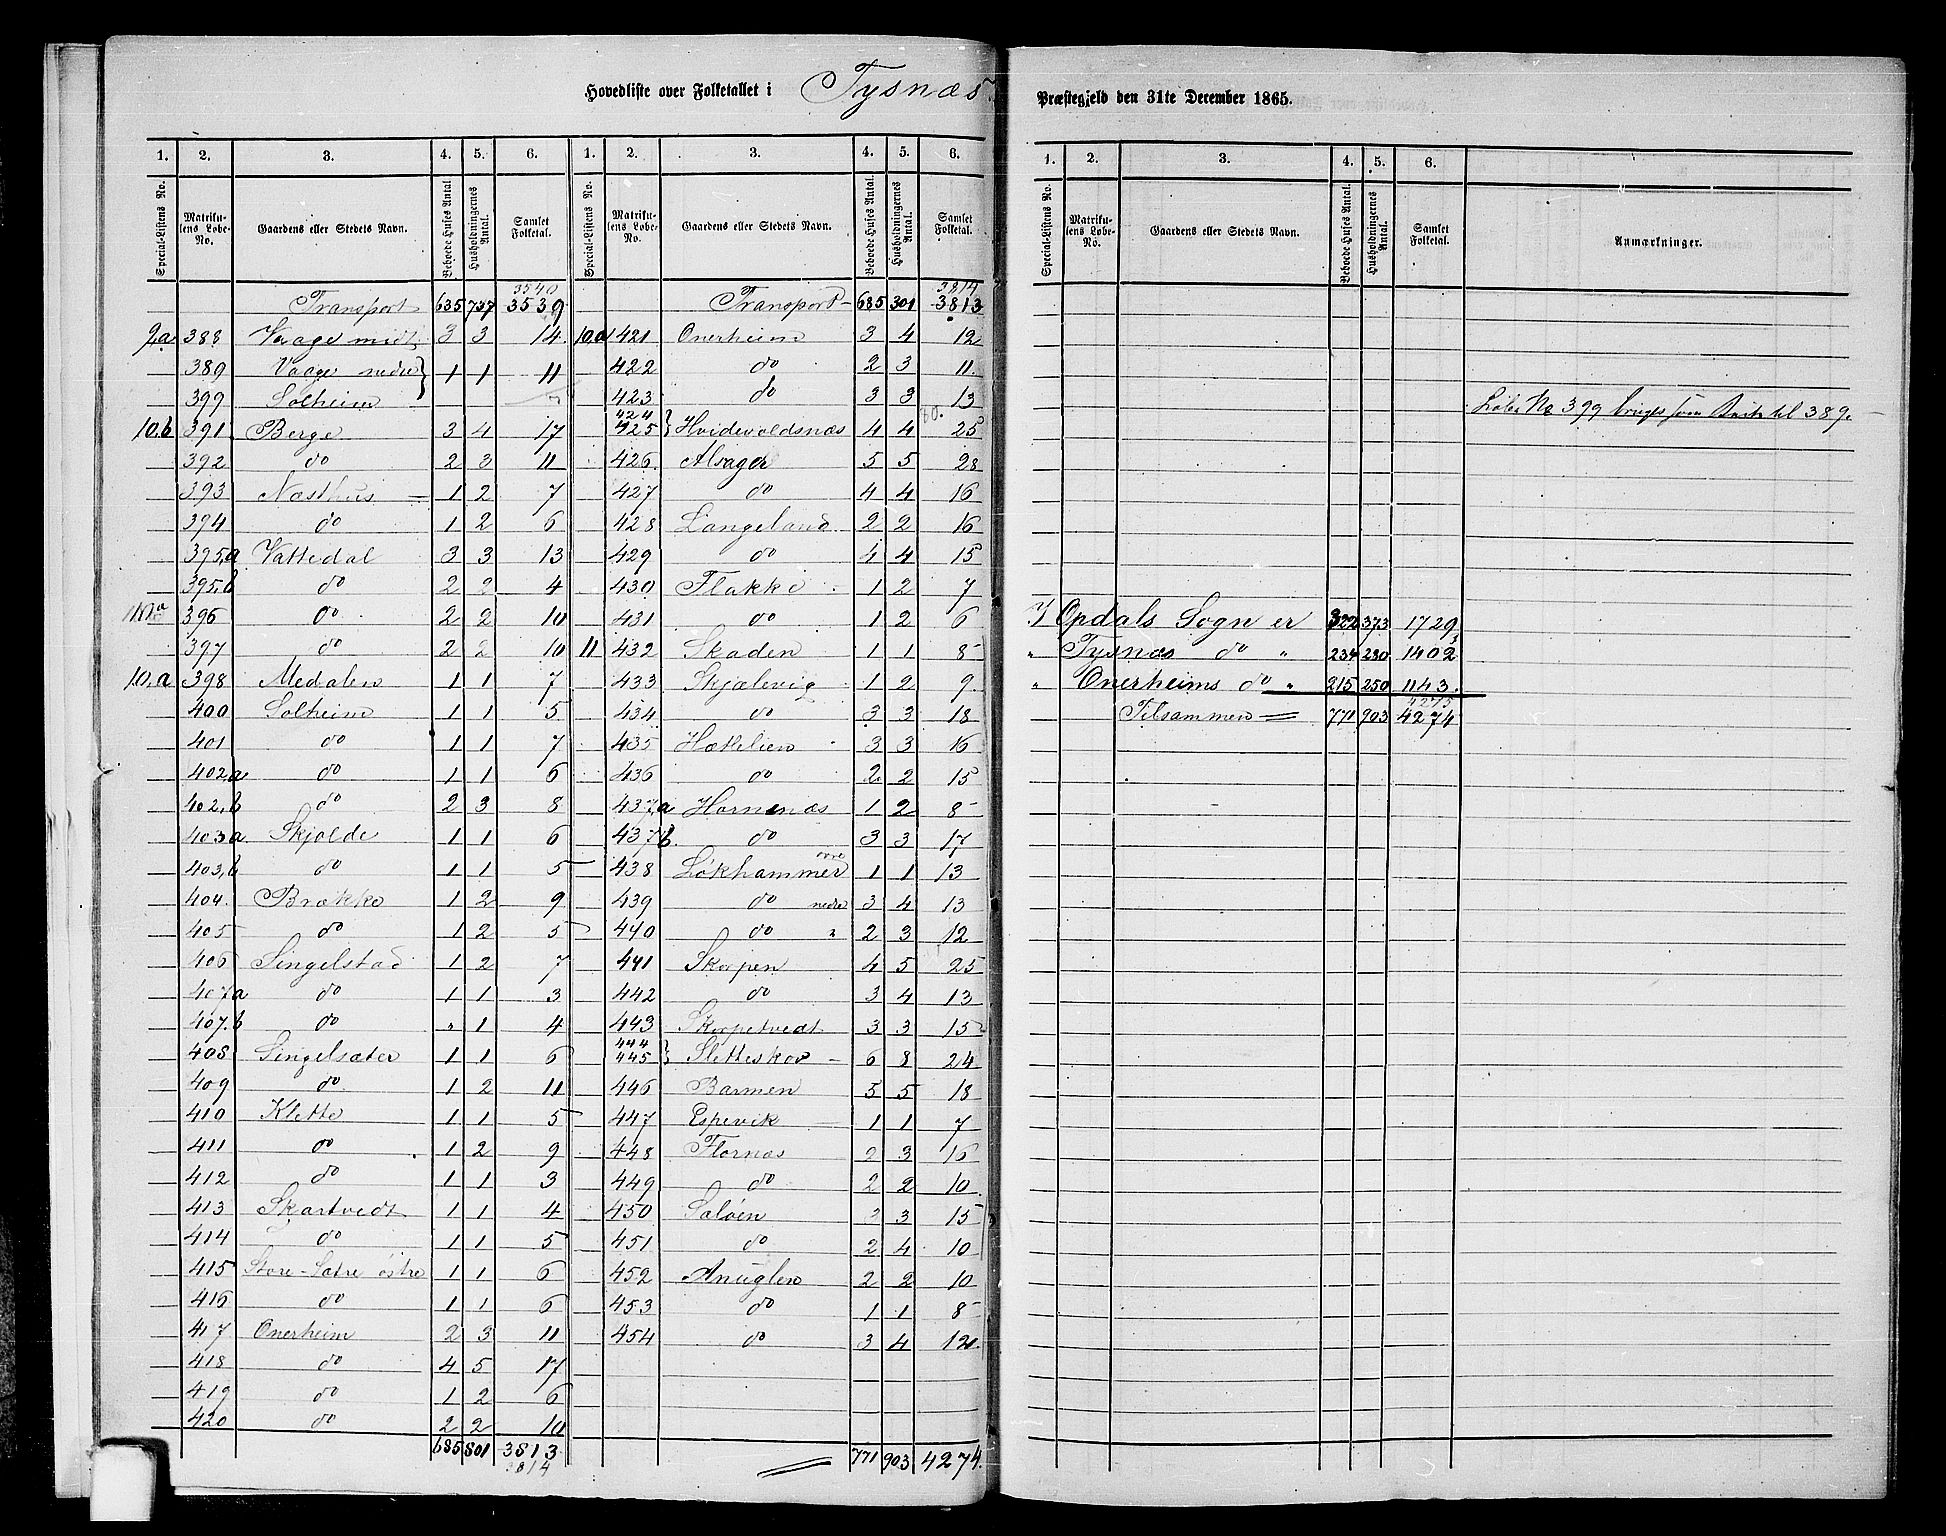 Hovedliste over Folketallet i Tysnæs Præstegjeld den 31te December 1865.
1. 2. 3. 4. 5. 6.
Special-Listens No. Matrikulens Løbe-No. Gaardens eller Stedets Navn. Beboede Huses Antal. Husholdningernes Antal. Samlet Folketal.
3540
Transport 635 737 3539
9.a 388 Vaage midt 3 3 14
389 Vaage nedre } 1 1 11
399 Solheim
10.b 391 Berge 3 4 17
392 do 2 3 11
393 Næsthus 1 2 7
394 do 1 2 6
395,a Vattedal 3 3 13
395,b do 2 2 4
10.a 396 do 2 2 10
397 do 2 2 10
10.a 398 Medalen 1 1 7
400 Solheim 1 1 5
401 do 1 1 7
402,a do 1 1 6
402,b do 2 3 8
403a Skjolde 1 1 6
403,b do 1 1 5
404. Brække 1 2 9
405 do 1 2 5
406 Singelstad 1 2 7
407a do 1 1 3
407.b do " 1 4
408 Singelsæter 1 1 6
409 do 1 2 11
410 Klette 1 1 5
411 do 1 2 9
412 do 1 1 3
413 Skartvedt 1 1 4
414 do 1 1 5
415 Store-Satre østre 1 1 6
416 do 1 1 6
417 Onerheim 2 3 11
418 do 4 5 17
419 do 1 2 6
420 do 2 2 10
685 801 3813
3814
1. 2. 3. 4. 5. 6.
Special-Listens No. Matrikulens Løbe-No. Gaardens eller Stedets Navn. Beboede Huses Antal. Husholdningernes Antal. Samlet Folketal.
3814
Transport 685 301 3813
10.a 421 Onerheim 3 4 12
422 do 2 3 11
423 do 3 3 13
424
425 } Hvidevoldsnæs 4 4 25
426 Alsager 5 5 28
427 do 4 4 16
428 Langeland 2 2 16
429 do 4 4 15
430 Flakke 1 2 7
431 do 1 2 6
11 432 Skaden 1 1 8
433 Skjælevig 1 2 9
434 do 3 3 18
435 Hætlelien 3 3 16
436 do 2 2 15
437,a Hornenæs 1 2 8
437b. do 3 3 17
438 Løkhammer øvre 1 1 13
439 do nedre 3 4 13
440 do " 2 3 12
441 Skorpen 4 5 25
442 do 3 4 13
443 Skorpetvedt 3 3 15
444
445 } Sletteskov 6 8 24
446 Barmen 5 5 18
447 Espevik 1 1 7
448 Flornæs 2 3 16
449 do 2 2 10
450 Saløen 3 3 15
451 do 2 4 10
452 Anuglen 2 2 10
453 do 1 1 8
454 do 3 4 12
771 903 4274.
1. 2. 3. 4. 5. 6.
Special-Listens No. Matrikulens Løbe-No. Gaardens eller Stedets Navn. Beboede Huses Antal. Husholdningernes Antal. Samlet Folketal. Anmærkninger.
Løbe No 399 bruges som Avik til 389.
I Opdals Sogn er 322 373 1729
" Tysnæs do " 234 280 1402
" Onerheims do " 215 250 1143.
4275
Tilsammen = 771 903 4274